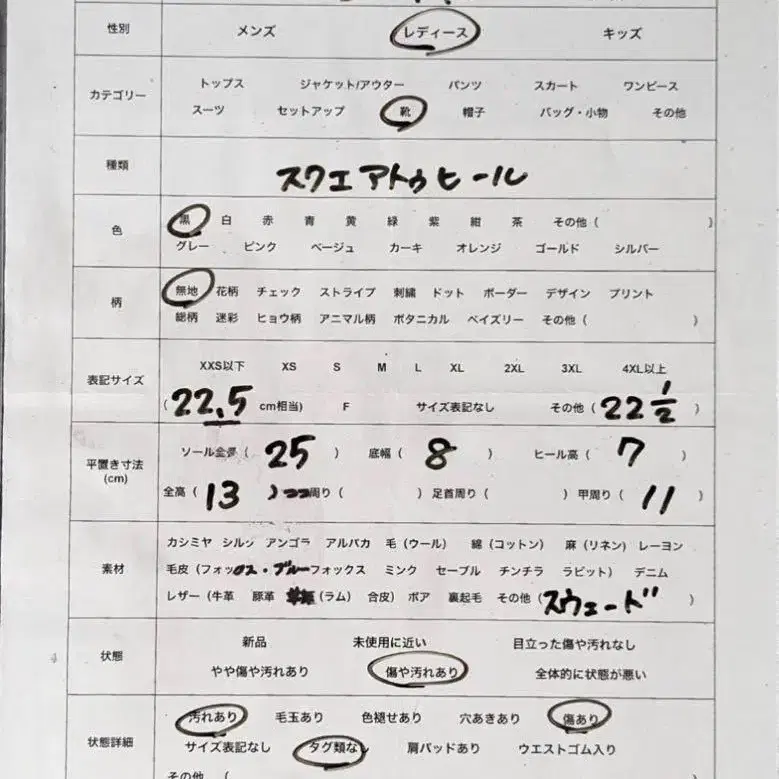 性別 メンズ レディース キッズ
カテゴリー トップス ジャケット/アウター パンツ スカート ワンピース
スーツ セットアップ 靴 帽子 バッグ・小物 その他
種類 スクエアトゥヒール
色 黒 白 赤 青 黄 緑 紫 紺 茶 その他 ( )
グレー ピンク ベージュ カーキ オレンジ ゴールド シルバー
柄 無地 花柄 チェック ストライプ 刺繍 ドット ボーダー デザイン プリント
総柄 迷彩 ヒョウ柄 アニマル柄 ボタニカル ペイズリー その他 ( )
表記サイズ XXS以下 XS S M L XL 2XL 3XL 4XL以上
( 22.5 cm相当) F サイズ表記なし その他 ( 22 1/2 )
平置き寸法 (cm) ソール全長 ( 25 ) 底幅 ( 8 ) ヒール高 ( 7 )
全高 ( 13 ) 周り ( ) 足首周り ( ) 甲周り ( 11 )
素材 カシミヤ シルク アンゴラ アルパカ 毛 (ウール) 綿 (コットン) 麻 (リネン) レーヨン
毛皮 (フォックス・ブルーフォックス ミンク セーブル チンチラ ラビット) デニム
レザー (牛革 豚革 (ラム) 合皮) ボア 裏起毛 その他 ( スウェード )
状態 新品 未使用に近い 目立った傷や汚れなし
やや傷や汚れあり 傷や汚れあり 全体的に状態が悪い
状態詳細 汚れあり 毛玉あり 色褪せあり 穴あきあり 傷あり
サイズ表記なし タグ類なし 肩パッドあり ウエストゴム入り
その他 (